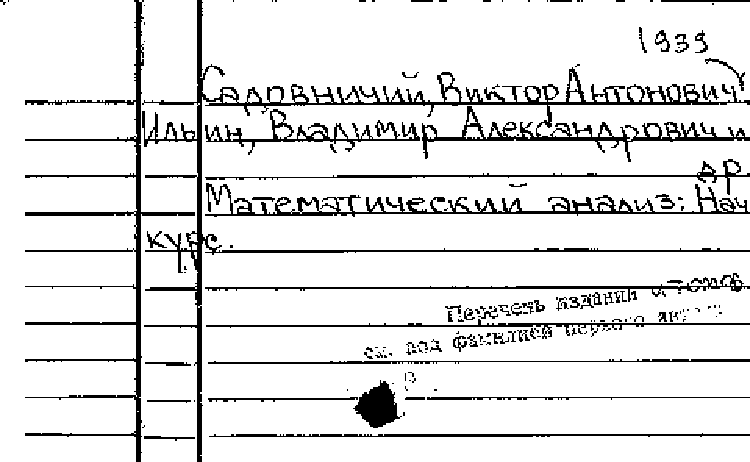 1939
Садовничий, Виктор Антонович
Ильин, Владимир Александрович и
др.
Математический анализ: Нач
курс.
Перечень изданий и томов
см. под фамилией первого автора